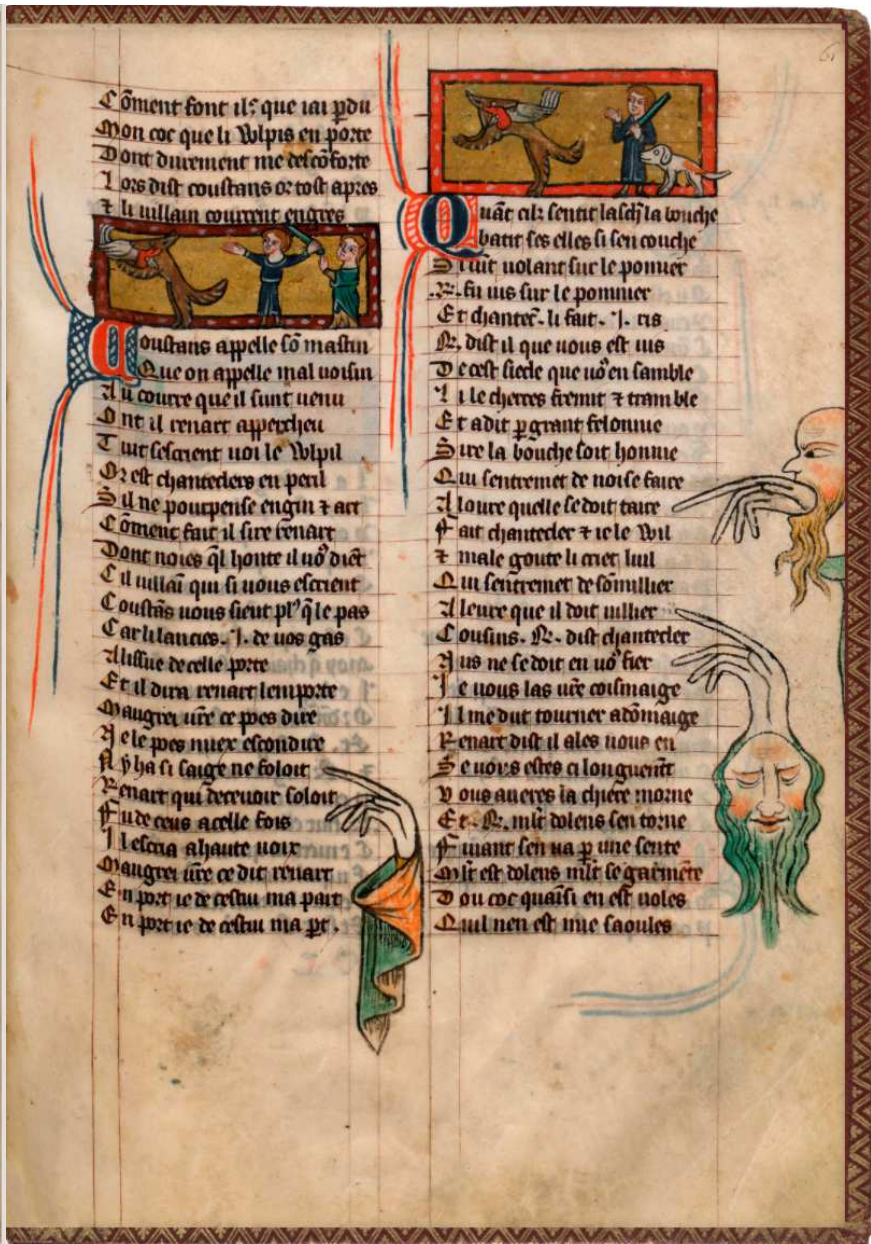 Cōment font il? que iai ꝑdu
Mon coc que li Wlpis en porte
Dont durement me descōforte
Lors dist coustans or tost apres
⁊ li uillain courrent engres
Coustans appelle sō mastin
Que on appelle mal uoisin
Au courre que il sunt uenu
Ont il renart appercheu
Tuit sescrient uoi le Wlpil
Or est chanteclers en peril
Sil ne pourpense engin ⁊ art
Cōment fait il sire renart
Dont noies ql̄ honte il uo᷒ diēt
Cil uillaī qui si uous escrient
Coustās uous sieut pl᷒ q̄ le pas
Car li lancies .I. de uos gas
A lissue de celle porte
Et il dira renart lemporte
Maugrei ur̄e ce poes dire
Ne le poes miex escondire
Ny ha si saige ne foloit
Renart qui deceuoir soloit
Fu deceus a celle fois
Il escria a haute uoix
Maugrei ur̄e ce dit renart
En port ie de cestui ma part
En port ie de cestui ma ꝑt .
61
Quāt cilz sentit lasch̄ la bouche
batit ses elles si sen couche
Si uīt uolant sur le pomier
.R. fu uis sur le pommier
Et chanter̄. li fait .I. ris
R. dist il que uous est uis
De cest siecle que uo᷒ en samble
Li lecherres fremit ⁊ tramble
Et a dit ꝑ grant felonnie
Sire la bouche soit honnie
Qui sentremet de noise faire
A loure quelle se doit taire
Fait chantecler ⁊ ie le Wil
⁊ male goute li criet luil
Qui sentremet de sōmillier
A leure que il doit uillier
Cousins .R. dist chantecler
Nus ne se doit en uo᷒ fier
Ie uous las ur̄e coismaige
Il me dut tourner a dōmaige
Renart dist il ales uous en
Se uous estes ci longuemt̄
Vous aueres la chiere morne
Et .R. ml̄t dolens sen torne
Fuiant sen ua ꝑ une sente
Ml̄t est dolens ml̄t se garmēte
Dou coc quaīsi en est uoles
Quil nen est mie saoules